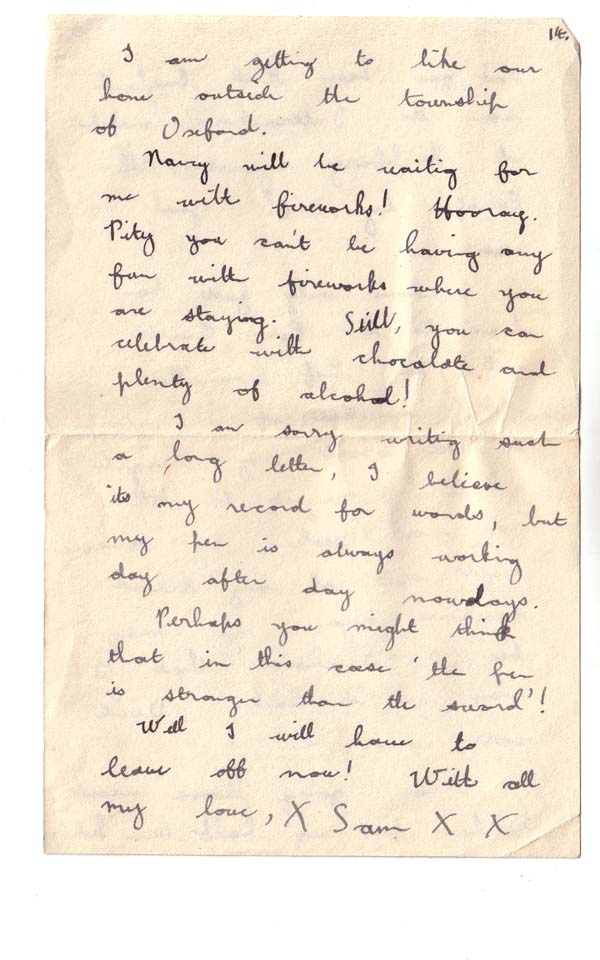 14.
I am getting to like our
home outside the township
of Oxford.
Nancy will be waitig for
me with fireworks! Hooray.
Pity you can't be having any
fun with fireworks where you
are staying. Still, you can
celebrate with chocolate and
plenty of alcohol!
I am sorry writig such
a long letter, I believe
its my record for words, but
my pen is always working
day after day nowdays.
Perhaps you might think
that in this case 'the pen
is stronger than the sword'!
Well I will have to
leave off now! With all
my love, X Sam X X